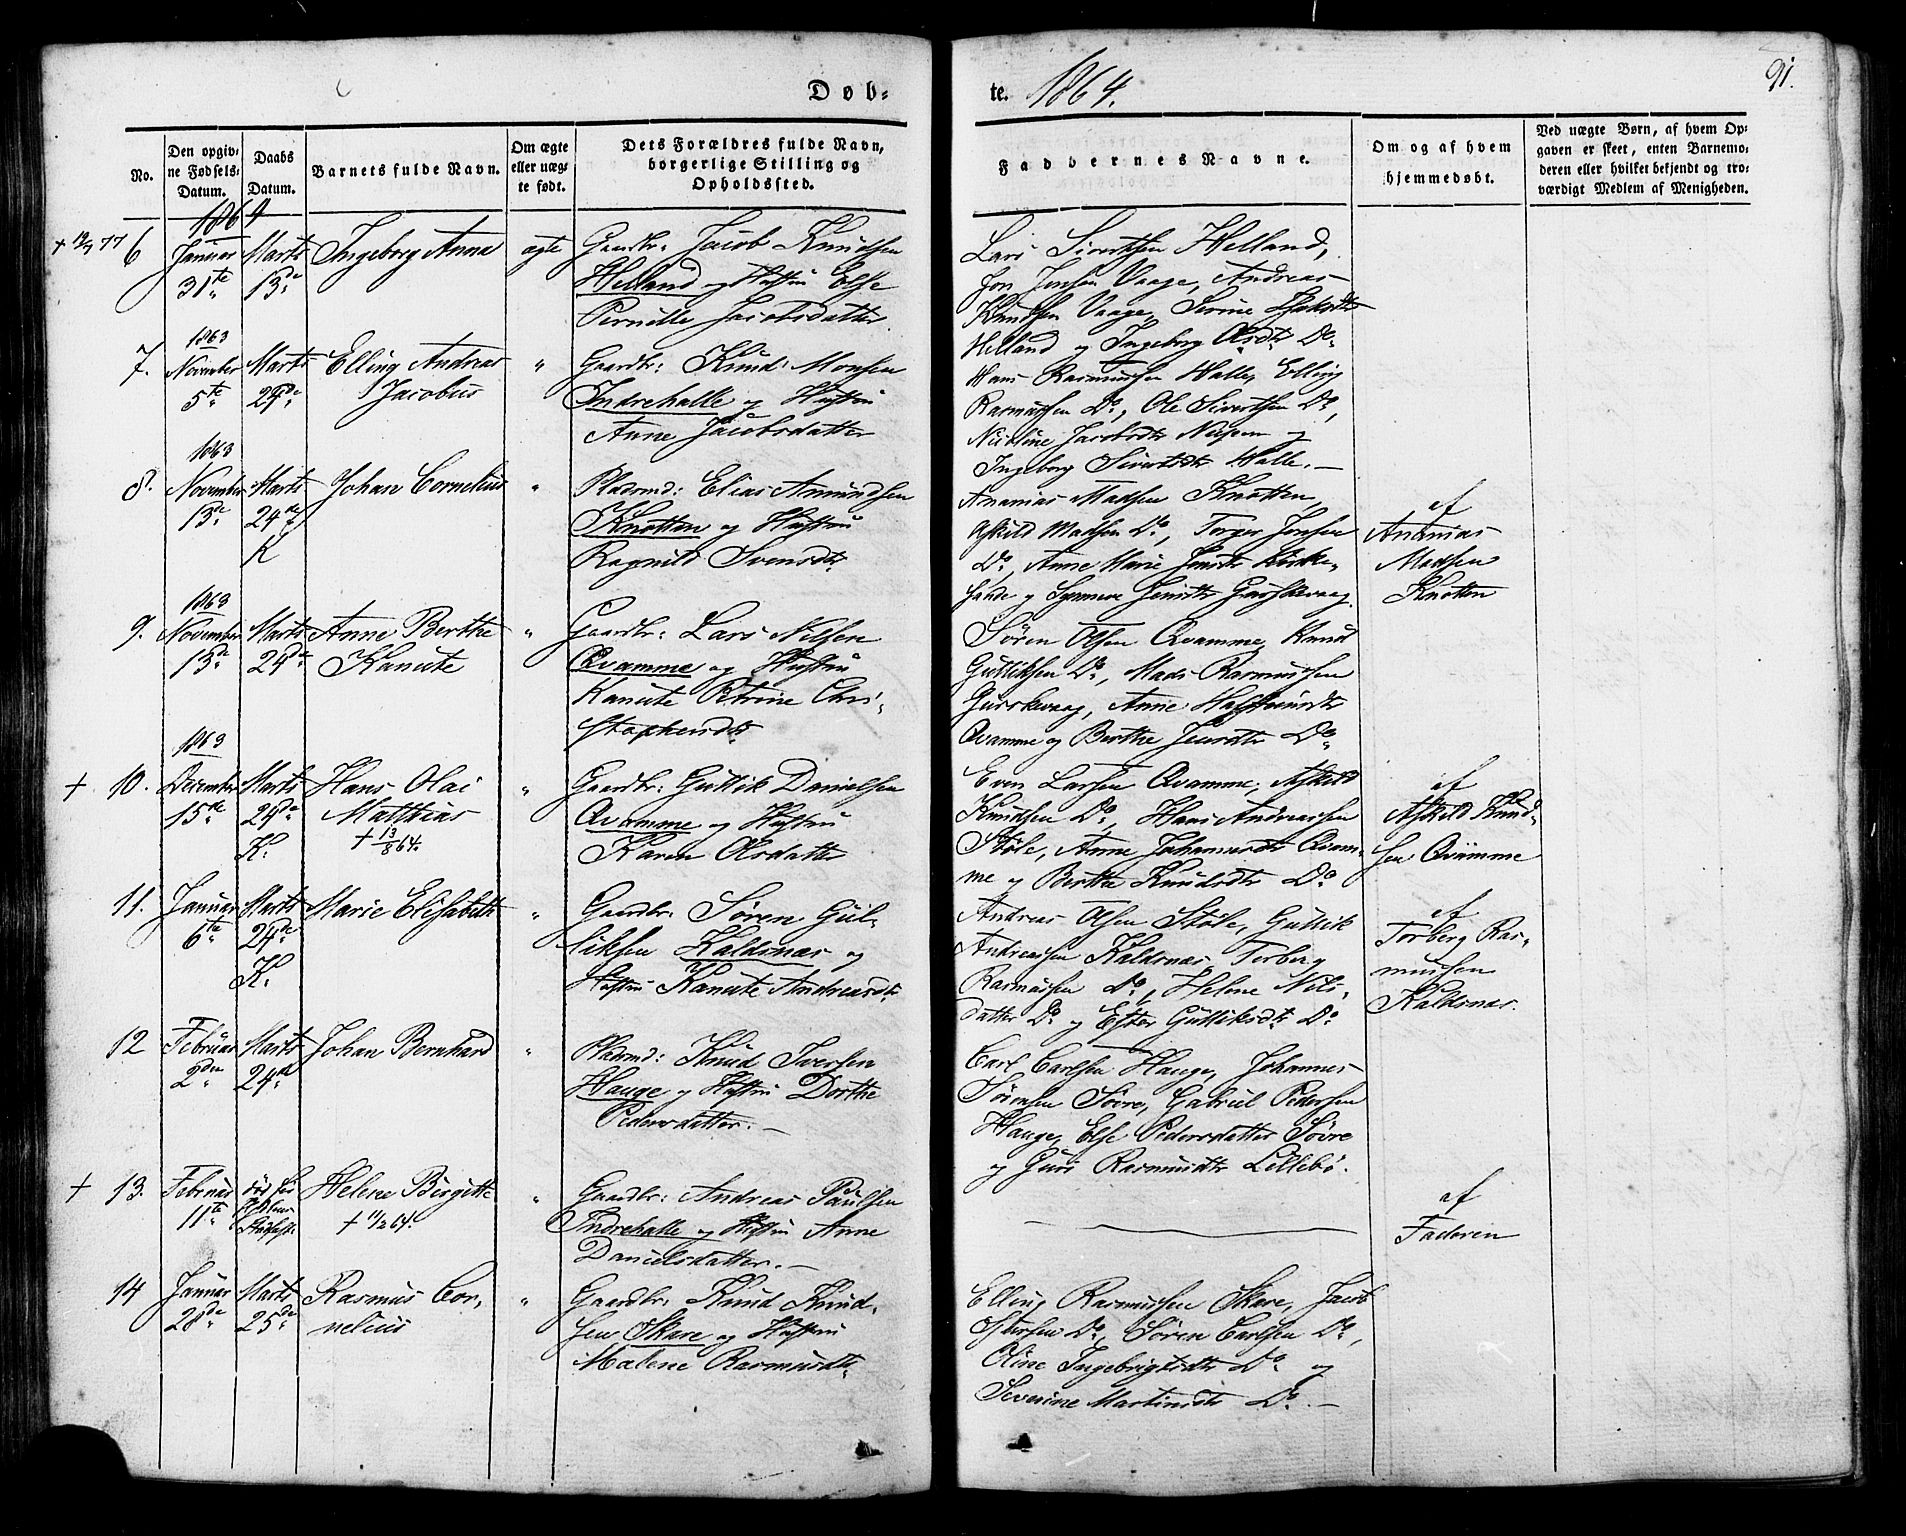 Døb-
te. 1864.
91.
No.
Den opgiv-
ne Fødsels-
Datum.
Daabs
Datum.
Barnets fulde Navn.
Om ægte
eller uæg-
te født.
Dets Forældres fulde Navn,
borgerlige Stilling og
Opholdssted.
Faddernes Navne.
Om og af hvem
hjemmedøbt.
Ved uægte Børn, af hvem Op-
gaven er skeet, enten Barnemo-
deren eller hvilket bekjendt og tro-
værdigt Medlem af Menigheden.
1864
6
Januar
31te
Marts
13de
Ingeborg Anna
ægte
Gaardbr: Jacob Knudsen
Helland og Hustru Else
Pernille Jacobsdatter
Lars Sivertsen Helland,
Jon Jensen Vaage, Andreas
Knudsen Vaage, Serine
Helland og Ingeborg Olsdtr Do.
1863
7.
November
5te
Marts
24de
Elling Andreas
Jacobus
"
Gaardbr: Knud Monsen
Indrehalle og Hustru
Anne Jacobsdatter
Hans Rasmussen Halle, Elling
Rasmussen Do, Ole Sivertsen Do,
Nicoline Jacobsdtr og
Ingeborg Sivertsdtr Halle.—
1863
8.
November
13de
Marts
24de
K
Johan Cornelius
"
Pladsmd: Elias Amundsen
Knotten og Hustru
Ragnild Svensdtr.
Ananias Madsen Knotten,
Askild Madsen Do, Torger Jonsen
Do, Anne Marie Jensdtr Kirke-
og Synneve Jensdtr Gurskevaag.
af
Ananias
Madsen
Knotten
1863
9.
November
13de
Marts
24de
Anne Berthe
Kanute
"
Gaardbr: Lars Nilsen
Qvamme og Hustru
Kanute Petrine Chri-
stophersdtr.
Søren Olsen Qvamme, Knud
Gulliksen Do, Mads Rasmussen
Gurskevaag, Anne
Qvamme og Berthe Jensdtr Do.
1863
+ 10.
December
15de
Marts
24de
K.
Hans Olai
Matthias
+ 13/8 64.
"
Gaardbr: Gullik Danielsen
Qvamme og Hustru
Karen Olsdatter
Even Larsen Qvamme, Askild
Knudsen Do, Hans Andreassen
Støle, Anne Johannesdtr Qvam-
me og Berthe Knudsdtr Do
af
Askild Knud-
sen Qvamme
11.
Januar
6te
Marts
24de
K.
Marie Elisabeth
"
Gaardbr: Søren Gul-
liksen Kaldsnæs og
Hustru Kanute Andreasdtr
Andreas Olsen Støle, Gullik
Andreassen Kaldsnæs, Torberg
Rasmussen Do, Helene Nils-
datter Do og Ester Gulliksdtr Do
af
Torberg Ras-
mussen
Kaldsnæs.
12
Februar
2den
Marts
24de
Johan Bernhard
"
Pladsmd: Knud Iversen
Hauge og Hustru Dorthe
Pedersdatter.—
Carl Carlsen Hauge, Johannes
Sørensen Søvre, Gabriel Pedersen
Hauge, Else Pedersdatter Søvre
og Guri Rasmusdtr Lillebø.
+ 13.
Februar
11te
Helene Birgitte
+ 11/2 64.
"
Gaardbr: Andreas Paulsen
Indrehalle og Hustru Anne
Danielsdatter.—
af
Faderen
14
Januar
28de
Marts
25de
Rasmus Cor-
nelius
"
Gaardbr: Knud Knud-
sen Skare og Hustru
Malene Rasmusdtr.
Elling Rasmussen Skare, Jacob
Do, Søren Carlsen Do,
Oline Ingebrigtsdtr Do. og
Severine Martinusdtr Do.—